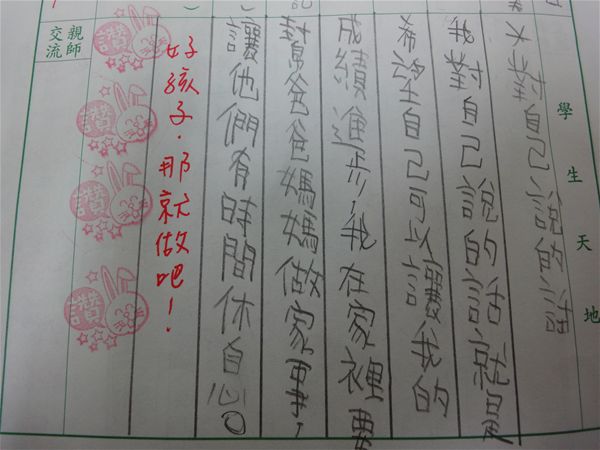 學生天地
對自己說的話
我對自己說的話就是
希望自己可以讓我的
成績進步，我在家裡要
幫爸爸媽媽做家事，
讓他們有時間休息。
好孩子，那就做吧！
讚
讚
讚
讚
親師
交流